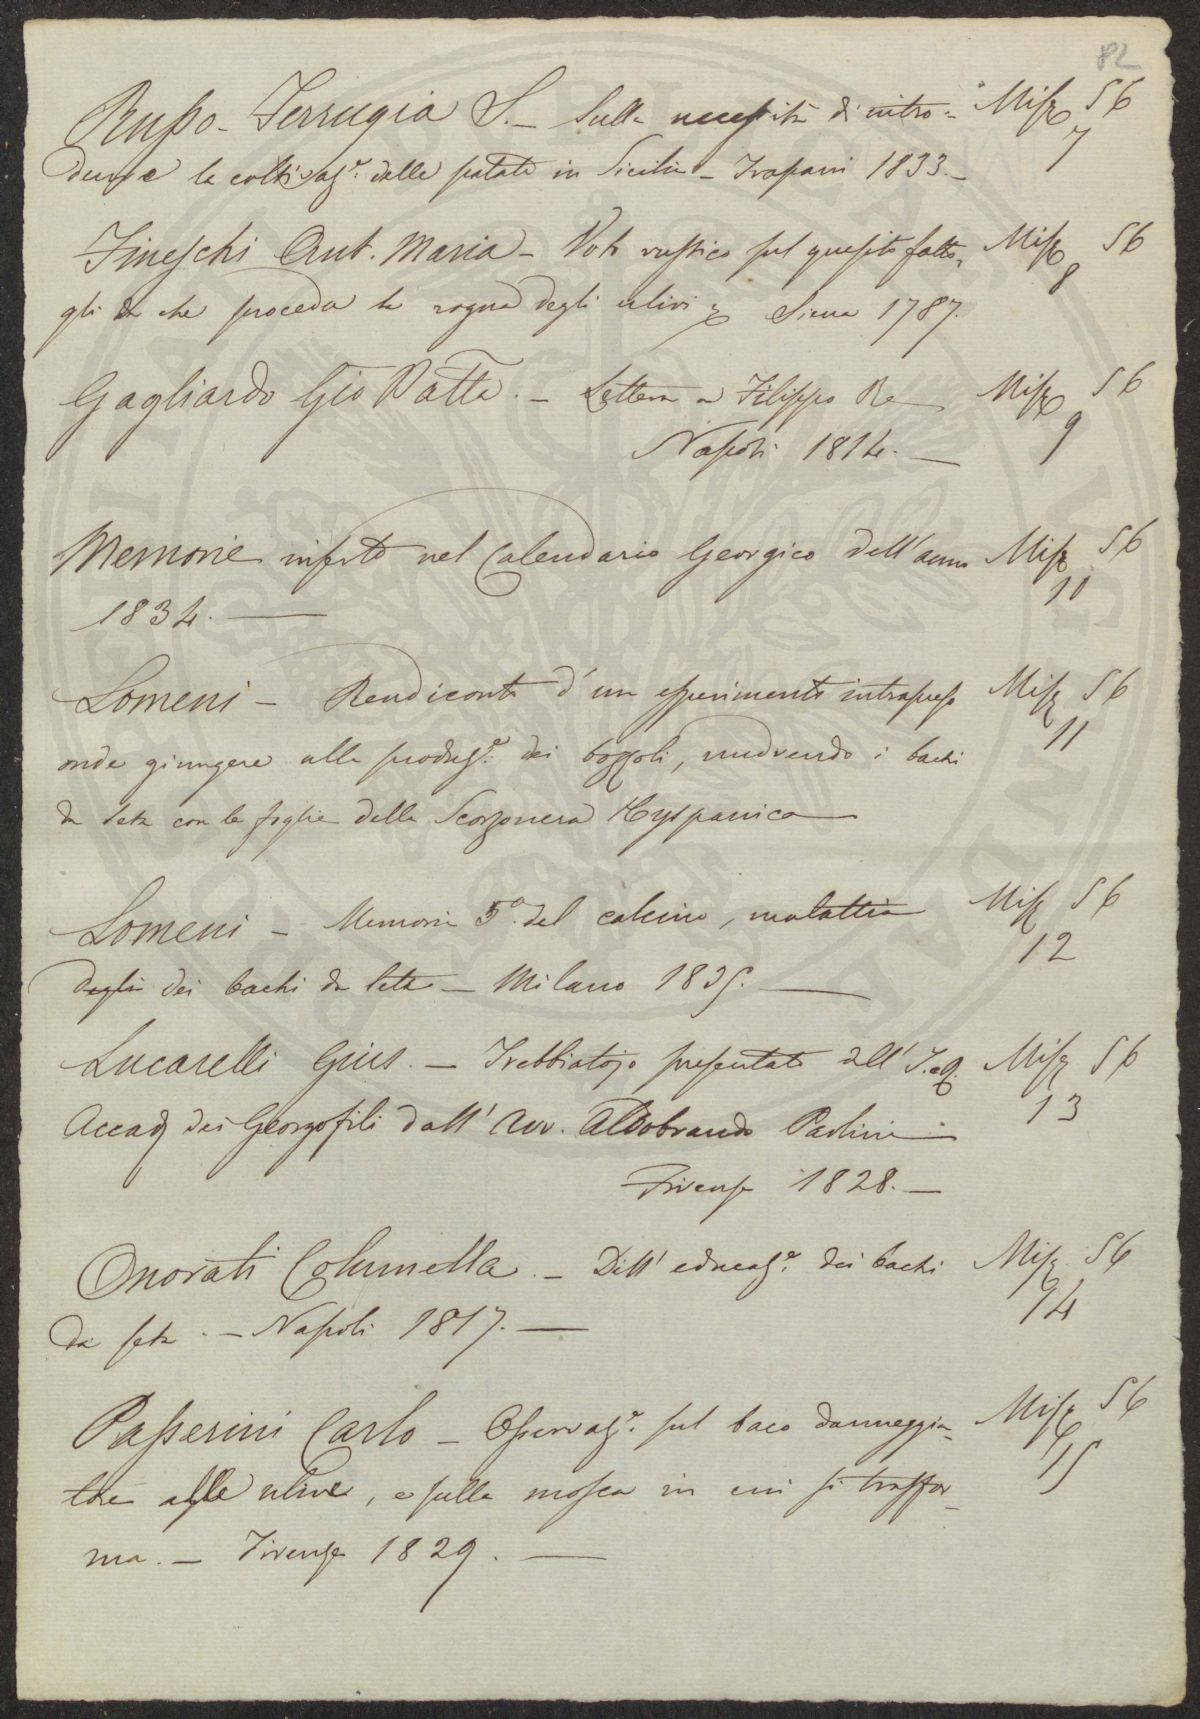 82
Russo-Ferrugia S. - Sulla necessità di intro= Misc. 56
durre la coltivaz.e delle patate in Sicilia - Trapani 1833.- 7
Fineschi Ant. Maria - Voto rustico sul quesito fatto= Misc. 56
gli da che proceda la rogna degli ulivi & Siena 1787. 8
Gagliardo Gio Batta. - Lettera a Filippo Re Misc. 56
Napoli 1814.- 9
Memorie inserite nel Calendario Georgico dell'anno Misc. 56
1834.- 10
Lomeni - Rendiconto d'un esperimento intrapreso Misc. 56
onde giungere alla produz.e dei bozzoli, nudrendo i bachi 11
da seta con le foglie della Scorzonera Hyspanica
Lomeni - Memoria 5a. del calcino, malattia Misc. 56
degli dei bachi da seta - Milano 1835.- 12
Lucarelli Gius. - Trebbiatojo presentato all'I. e R. Misc. 56
Accad. dei Georgofili dall'Avv. Aldobrando Paolini 13
Firenze 1828.-
Onorati Columella. - Dell'educaz.e dei bachi Misc. 56
da seta. - Napoli 1817.- 14
Passerini Carlo - Osservaz.e sul baco danneggia= Misc. 56
tore alle ulive, e sulla mosca in cui si trasfor= 15
ma. - Firenze 1829.-